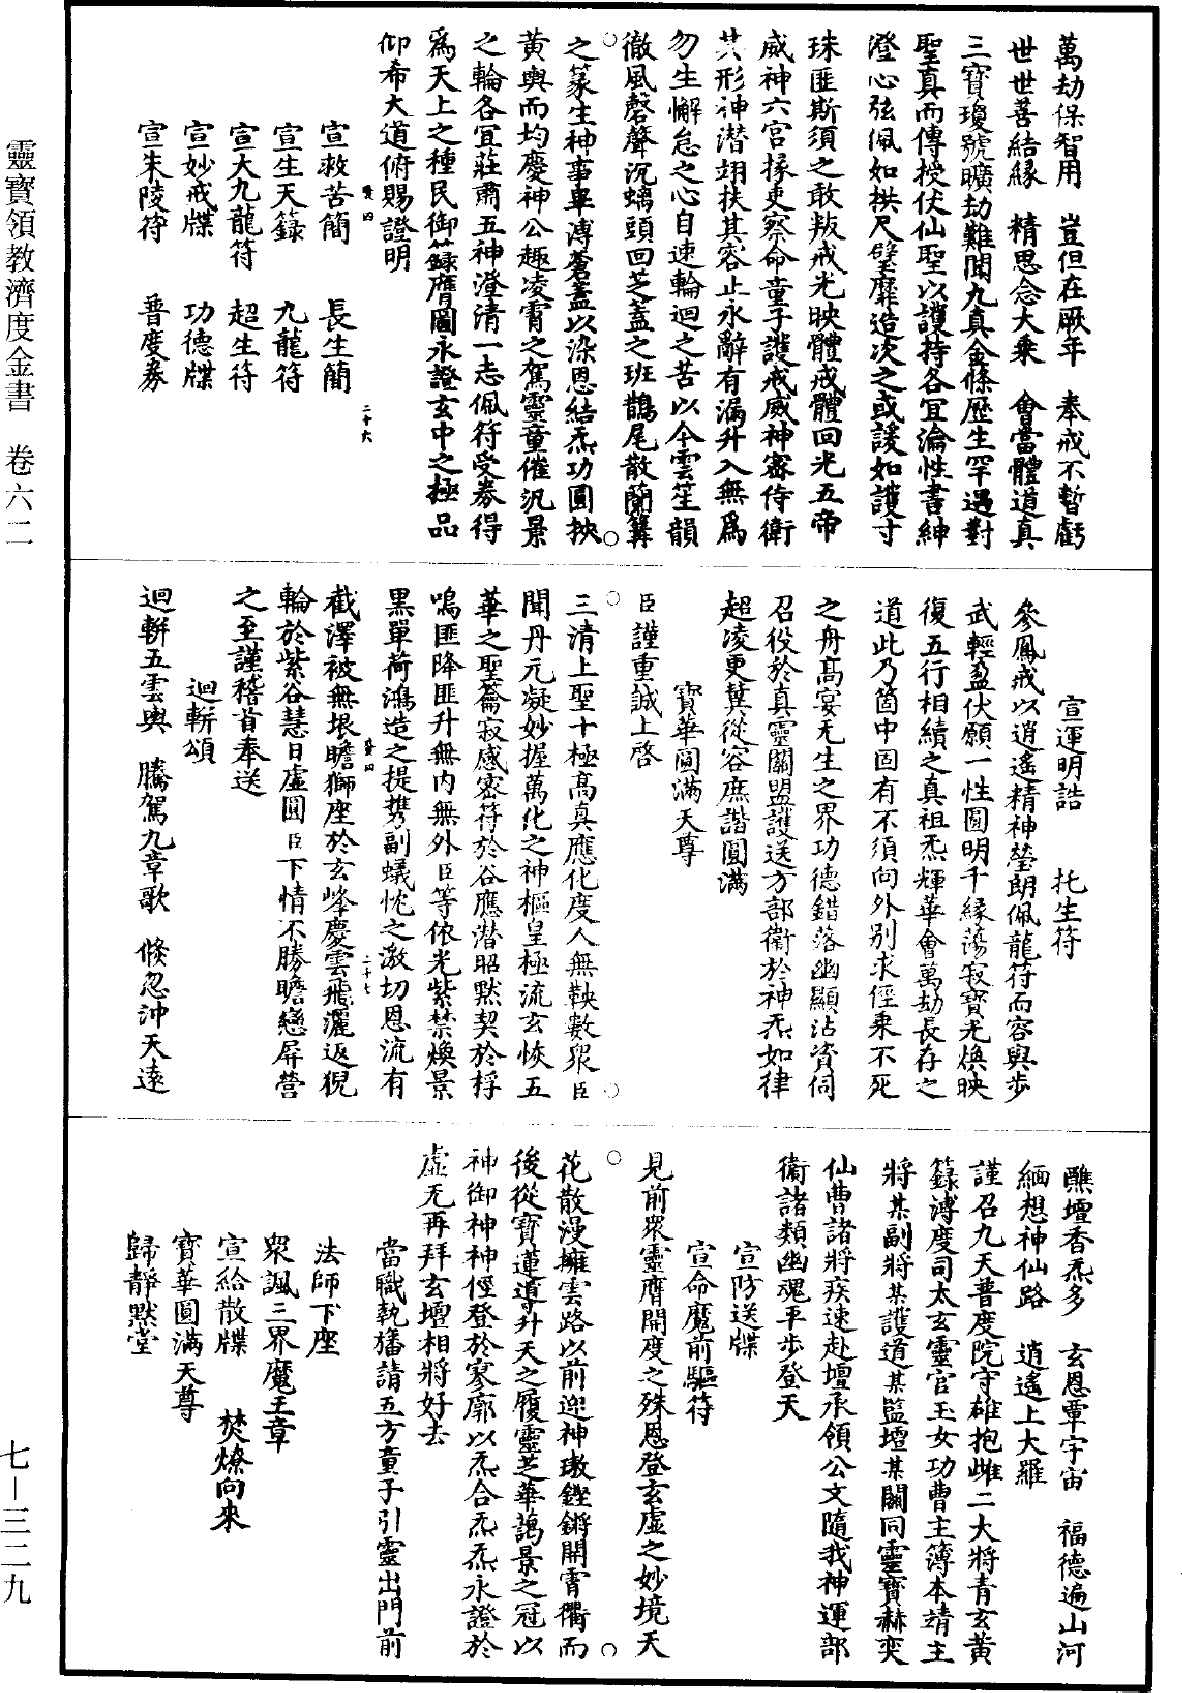 萬劫保智用　豈但在厥年　奉戒不暫虧
世世善結緣　精思念大乘　會當體道真
三寶瓊號曠劫難聞九真金條歷生罕遇對
聖真而傳授伏仙聖以護持各宜淪性書紳
澄心弦佩如拱尺璧靡造次之或諼如護寸
珠匪斯須之敢叛戒光映體戒體回光五帝
威神六宮掾吏察命童子護戒威神密侍衛
其形神潛翊扶其容止永辭有漏升入無為
勿生懈怠之心自速輪迴之苦以今雲笙韻
徹風磬聲沉螭頭回芝蓋之班鵲尾散蘭篝
之篆生神事畢溥蒼蓋以染恩結炁功圓抰
黃輿而均慶神公趣凌霄之駕靈童催汎景
之輪各宜莊肅五神澄清一志佩符受券得
為天上之種民御籙膺圖永證玄中之極品
仰希大道俯賜證明
宣救苦簡　長生簡
宣生天籙　九龍符
宣大九龍符　超生符
宣妙戒牒　功德牒
宣朱陵符　普度券
二十六
宣運明誥　托生符
參鳳戒以逍遙精神瑩朗佩龍符而容與步
武輕盈伏願一性圓明千緣蕩寂寶光煥映
復五行相續之真祖炁輝華會萬劫長存之
道此乃箇中固有不須向外別求徑乘不死
之舟高宴无生之界功德錯落幽顯沾資伺
召役於真靈關盟護送方部衛於神炁如律
超凌更冀從容庶諧圓滿
寶華圓滿天尊
臣謹重誠上啓
三清上聖十極高真應化度人無鞅數眾臣
聞丹元凝妙握萬化之神樞皇極流玄恢五
華之聖籥寂感密符於谷應潛昭默契於桴
鳴匪降匪升無內無外臣等依光紫禁煥景
黑單荷鴻造之提携副蟻忱之激切恩流有
截澤被無垠瞻獅座於玄峰慶雲飛灑返猊
輪於紫谷慧日虛圓臣下情不勝瞻戀屏營
之至謹稽首奉送
迴軿頌
迴軿五雲輿　騰駕九章歌　倏忽沖天遠
二十七
醮壇香炁多　玄恩覃宇宙　福德遍山河
緬想神仙路　逍遙上大羅
謹召九天普度院守雄抱雌二大將青玄黃
籙溥度司太玄靈官玉女功曹主簿本靖主
將某副將某護道某監壇某關同靈寶赫奕
仙曹諸將疾速赴壇承領公文隨我神運部
衛諸類幽魂平步登天
宣防送牒
宣命魔前驅符
見前眾靈膺開度之殊恩登玄虛之妙境天
花散漫擁雲路以前迎神璈鏗鏘開霄衢而
後從寶蓮導升天之履靈芝華藹景之冠以
神御神神徑登於寥廓以炁合炁炁永證於
虛无再拜玄壇相將好去
當職執旛請五方童子引靈出門前
法師下座
眾諷三界魔王章
宣給散牒　焚燎向來
寶華圓滿天尊
歸靜默堂
靈寶領教濟度金書　卷六二
七—三二九